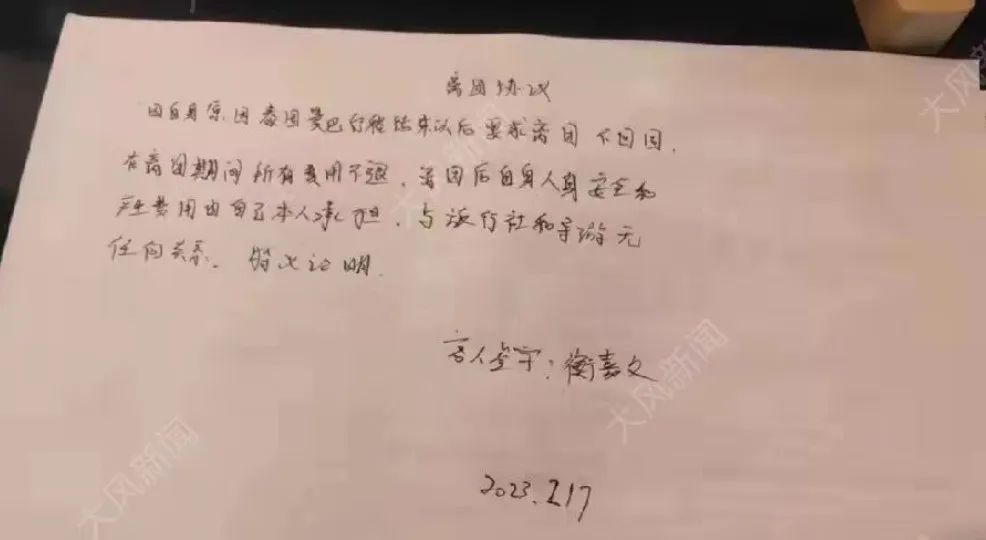 离团协议
因自身原因泰国曼巴行程结束以后要求离团不回国.
在离团期间所有费用不退、离团后自身人身安全和
产生费用由自己本人承担、与旅行社和导游无
任何关系. 特此证明.
客人签字: 衡嘉文
2023.2.17
大风新闻
大风新闻
大风新闻
大风新闻
大风新